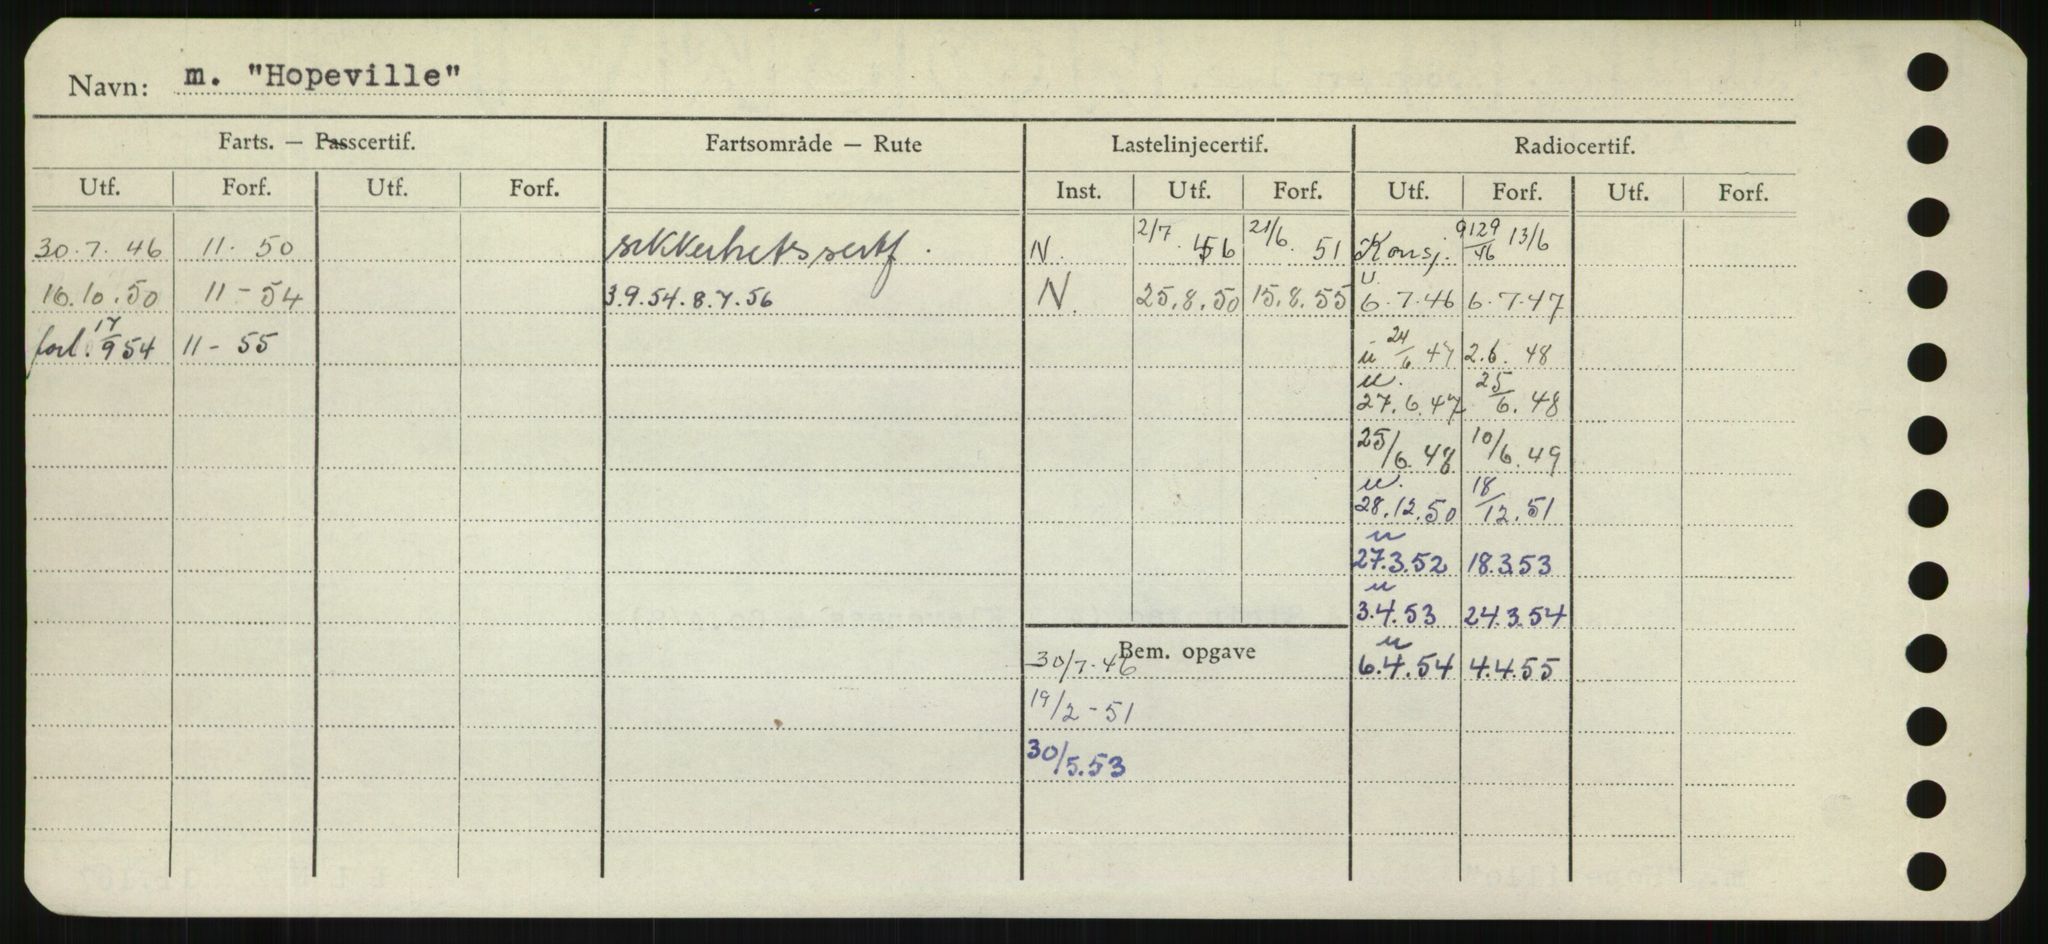 Navn: m. "Hopeville"
Farts. — Passcertif. Fartsområde — Rute Lastelinjecertif. Radiocertif.
Utf. Forf. Utf. Forf. Inst. Utf. Forf. Utf. Forf. Utf. Forf.
30.7.46 11-50 sikkerhetssertf. N. 2/7. 46 21/6. 51 Konsj. 9129/46 13/6
16.10.50 11-54 3.9.54.8.7.56 N. 25.8.50 15.8.55 u. 6.7.46 6.7.47
forl. 17/9 54 11-55 u 24/6 47 2.6.48
u. 27.6.47 25/6.48
25/6.48 10/6.49
u. 28.12.50 18/12.51
u 27.3.52 18.3.53
u 3.4.53 24.3.54
Bem. opgave
30/7.46 u 6.4.54 4.4.55
19/2-51
30/5.53